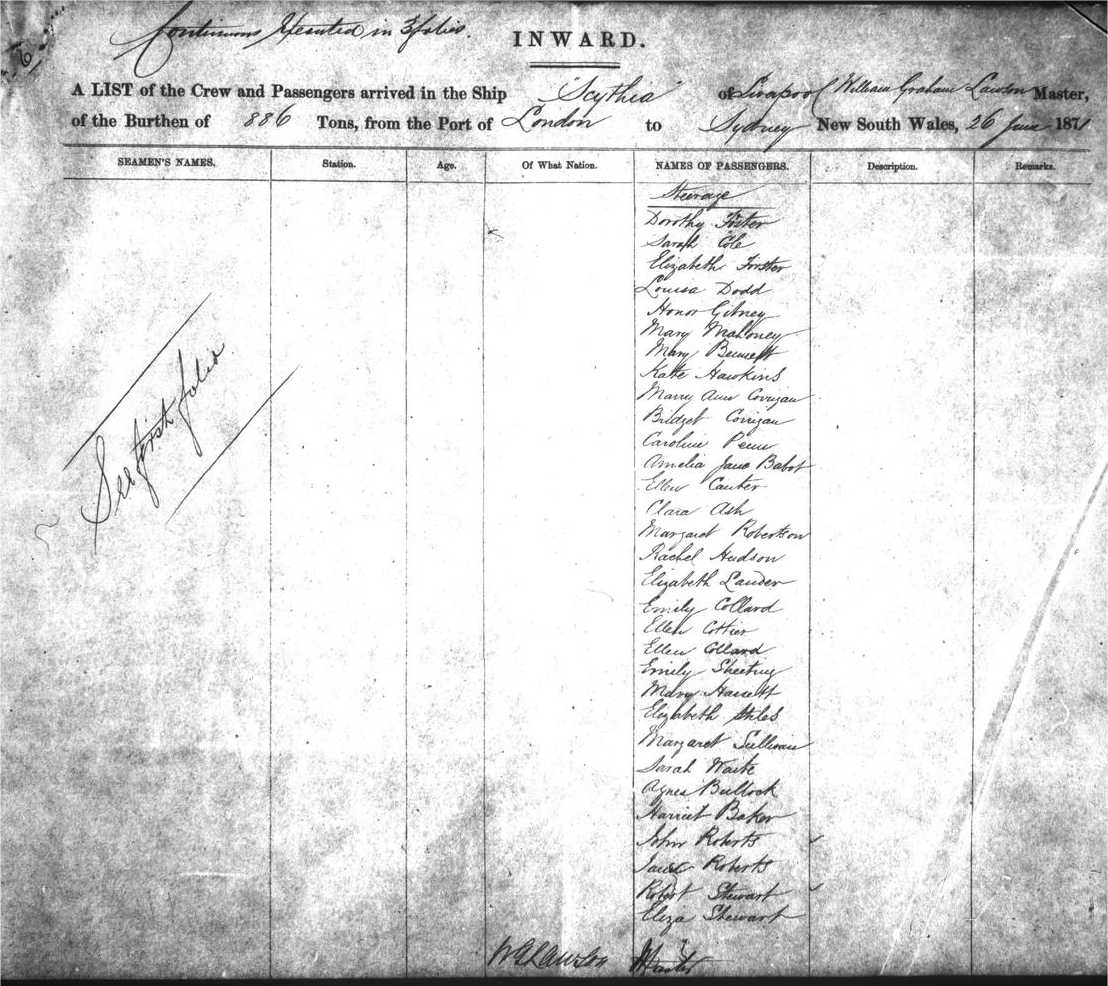 Continuous Executed in 3 folios.
6
INWARD.
A LIST of the Crew and Passengers arrived in the Ship "Scythia" of Liverpool William Graham Lawson Master,
of the Burthen of 886 Tons, from the Port of London to Sydney New South Wales, 26 June 1871
SEAMEN'S NAMES. Station. Age. Of What Nation. NAMES OF PASSENGERS. Description. Remarks.
Steerage
Dorothy Foster
Sarah Cole
Elizabeth Forster
Louisa Dodd
Honor Gibney
Mary Mahoney
Mary Bennett
Kate Hawkins
Marry Ann Corrigan
Bridget Corrigan
Caroline Penn
Amelia Jane Babot
Ellen Canter
Clara Ash
Margaret Robertson
Rachel Hudson
Elizabeth Lauder
Emily Collard
Ellen Cottier
Ellen Collard
Emily
Mary Hassett
Elizabeth Stiles
Margaret Sullivan
Sarah Waite
Agnes Bullock
Harriet Baker
John Roberts
Jane Roberts
Robert Stewart
Eliza Stewart
See first folio
WGLawson Master